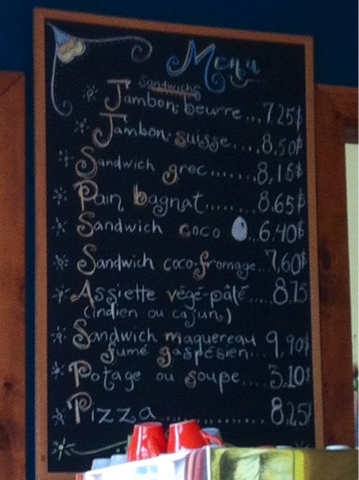 Menu
Sandwichs
Jambon-beurre...7.25$
Jambon-suisse....8,50$
Sandwich grec......8,15$
Pain bagnat.......8.65$
Sandwich coco ..6.40$
Sandwich coco-fromage..7,60$
Assiette végé-pâté....8.75
(indien ou cajun)
Sandwich maquereau 9,90$
fumé gaspésien...
Potage ou soupe...3.10$
Pizza..............8.25$